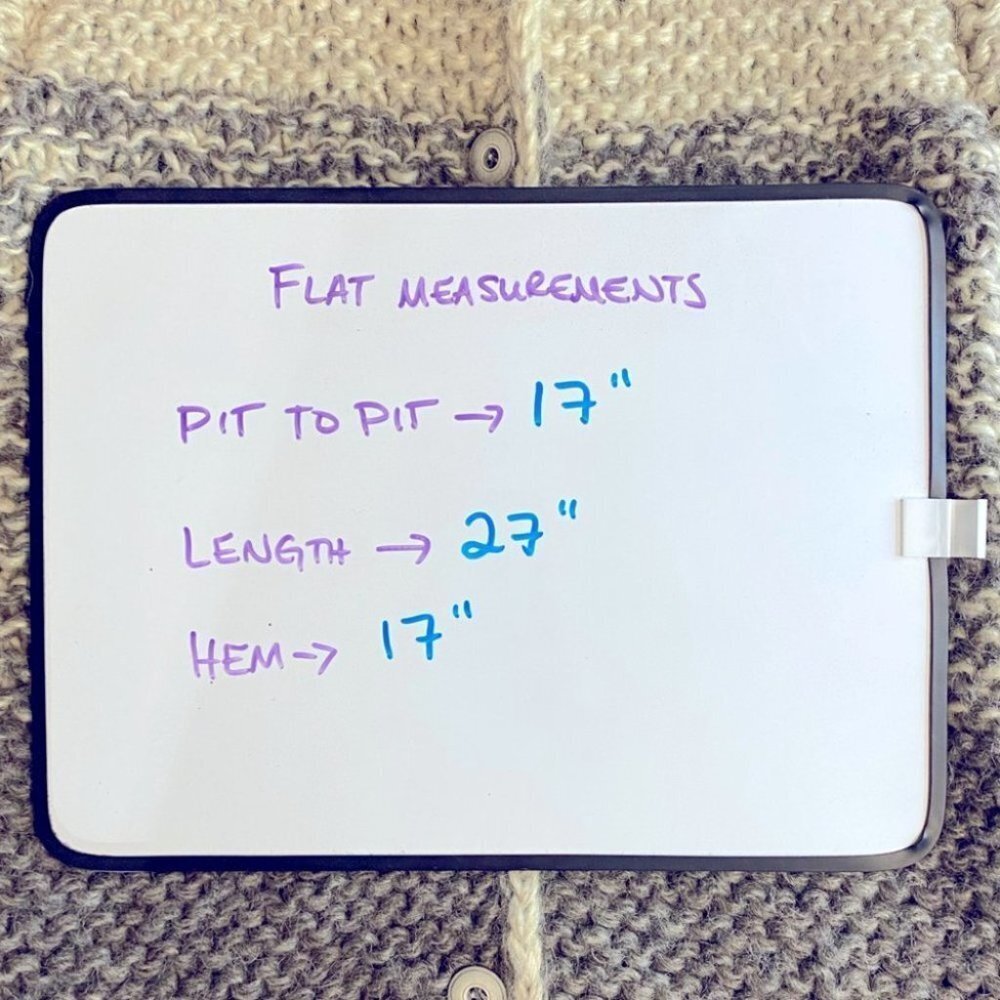 FLAT MEASUREMENTS
PIT TO PIT → 17"
LENGTH → 27"
HEM → 17"